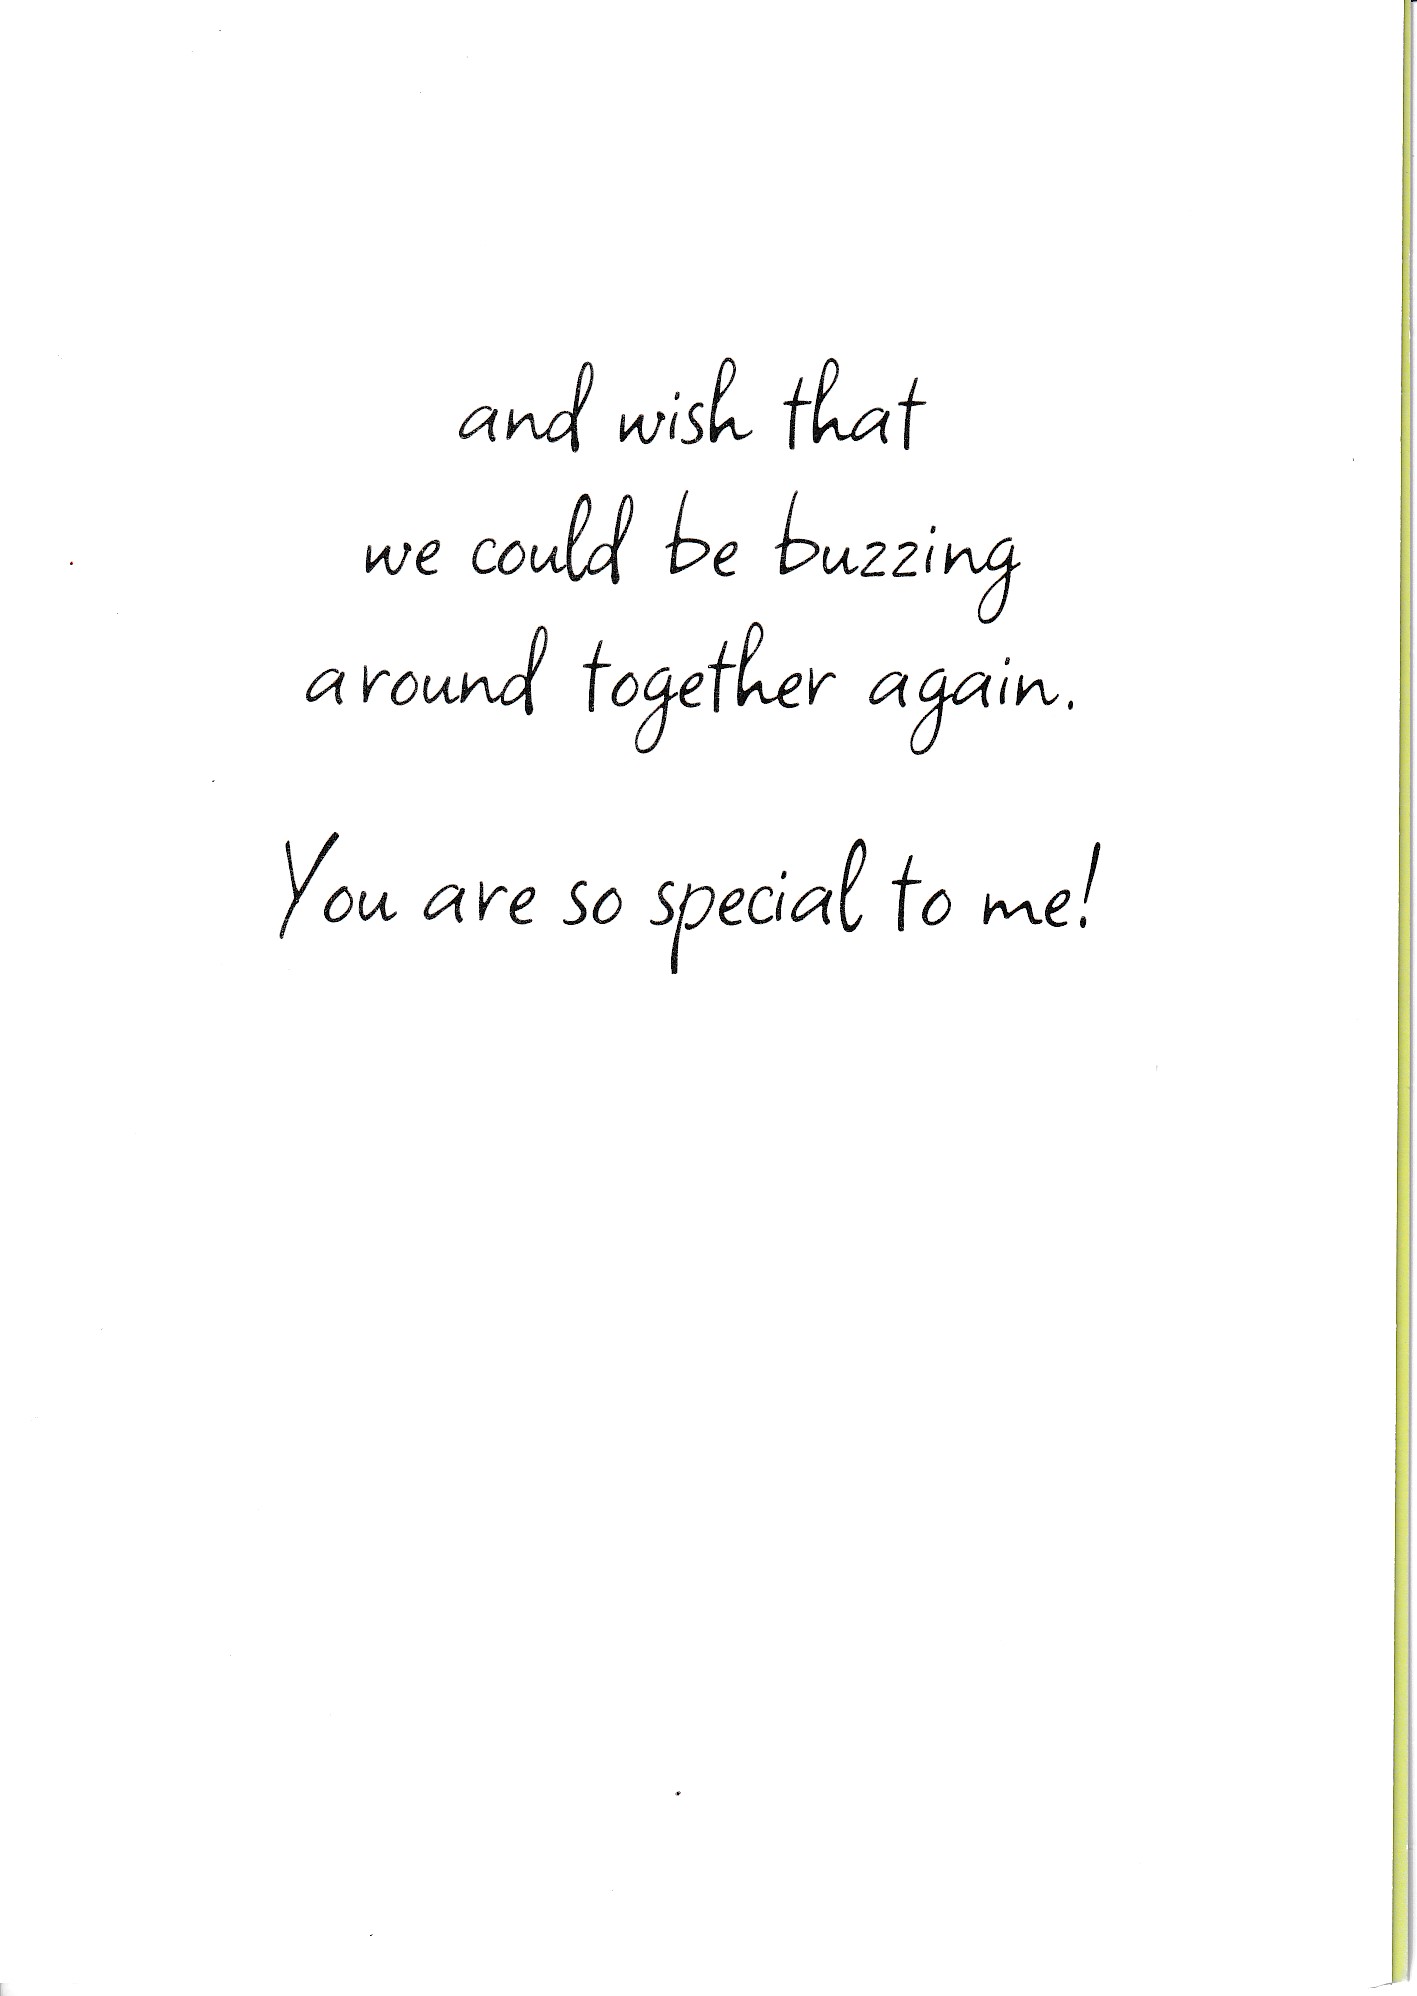 and wish that
we could be buzzing
around together again.
You are so special to me!